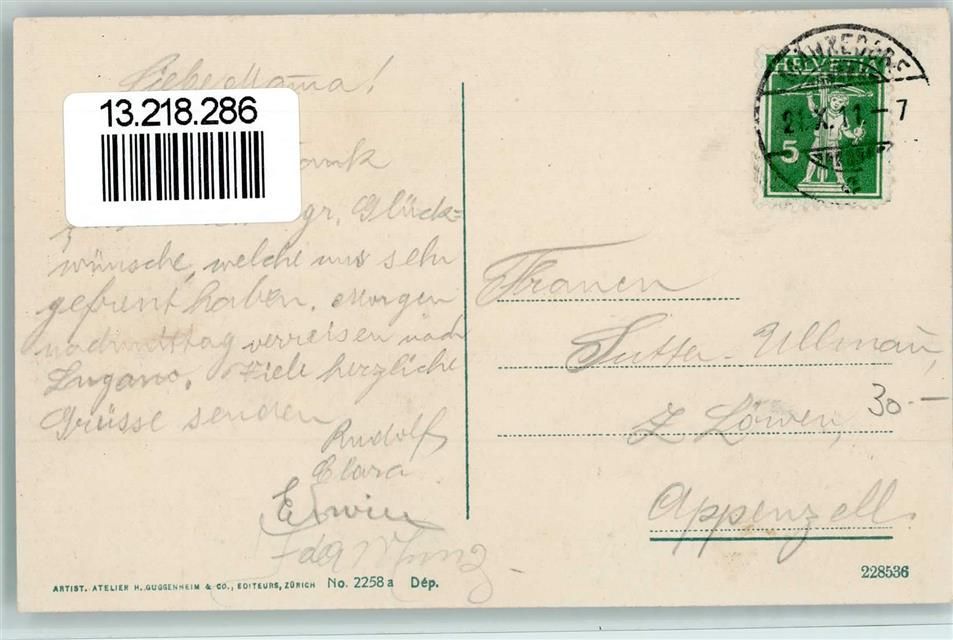 Liebe Mama!
13.218.286
Dank
gr. Glück=
wünsche, welche uns sehr
gefreut haben. Morgen
nachmittag verreisen nach
Lugano. Viele herzliche
Grüsse senden
Rudolf
Clara
Erwin
Ida
ARTIST. ATELIER H. GUGGENHEIM & CO., EDITEURS, ZÜRICH No. 2258 a Dép.
HELVETIA
5
21.X.11.-7
Frauen
Sutter-Ullmann,
z Löwen,
30.-
Appenzell.
228536